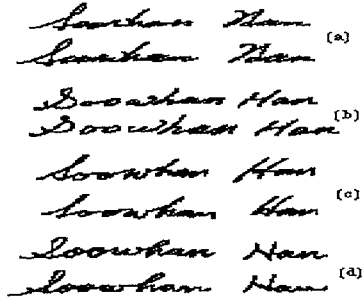 Soowhan Han
Soowhan Han [a]
Soowhan Han [b]
Soowhan Han
Soowhan Han
Soowhan Han [c]
Soowhan Han
Soowhan Han [d]